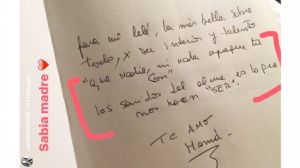 Sabia madre ❤️
para mi lelé, la más bella sobre
todo, x su interior y talento
"que nadie, ni nada apague tu
Son",
los sonidos del alma, es lo que
nos hacen "SER".
TE AMO
Mamá